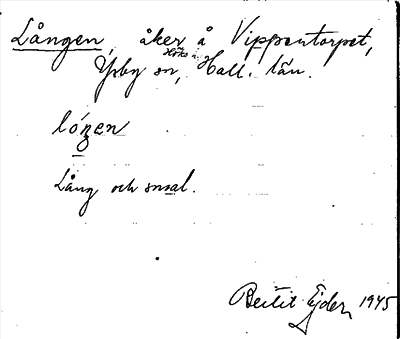 Lången, åker å Vippentorpet,
Höks h.
Ysby sn, Hall. län.
lóŋen
Lång och smal.
Berit Ejder 1945